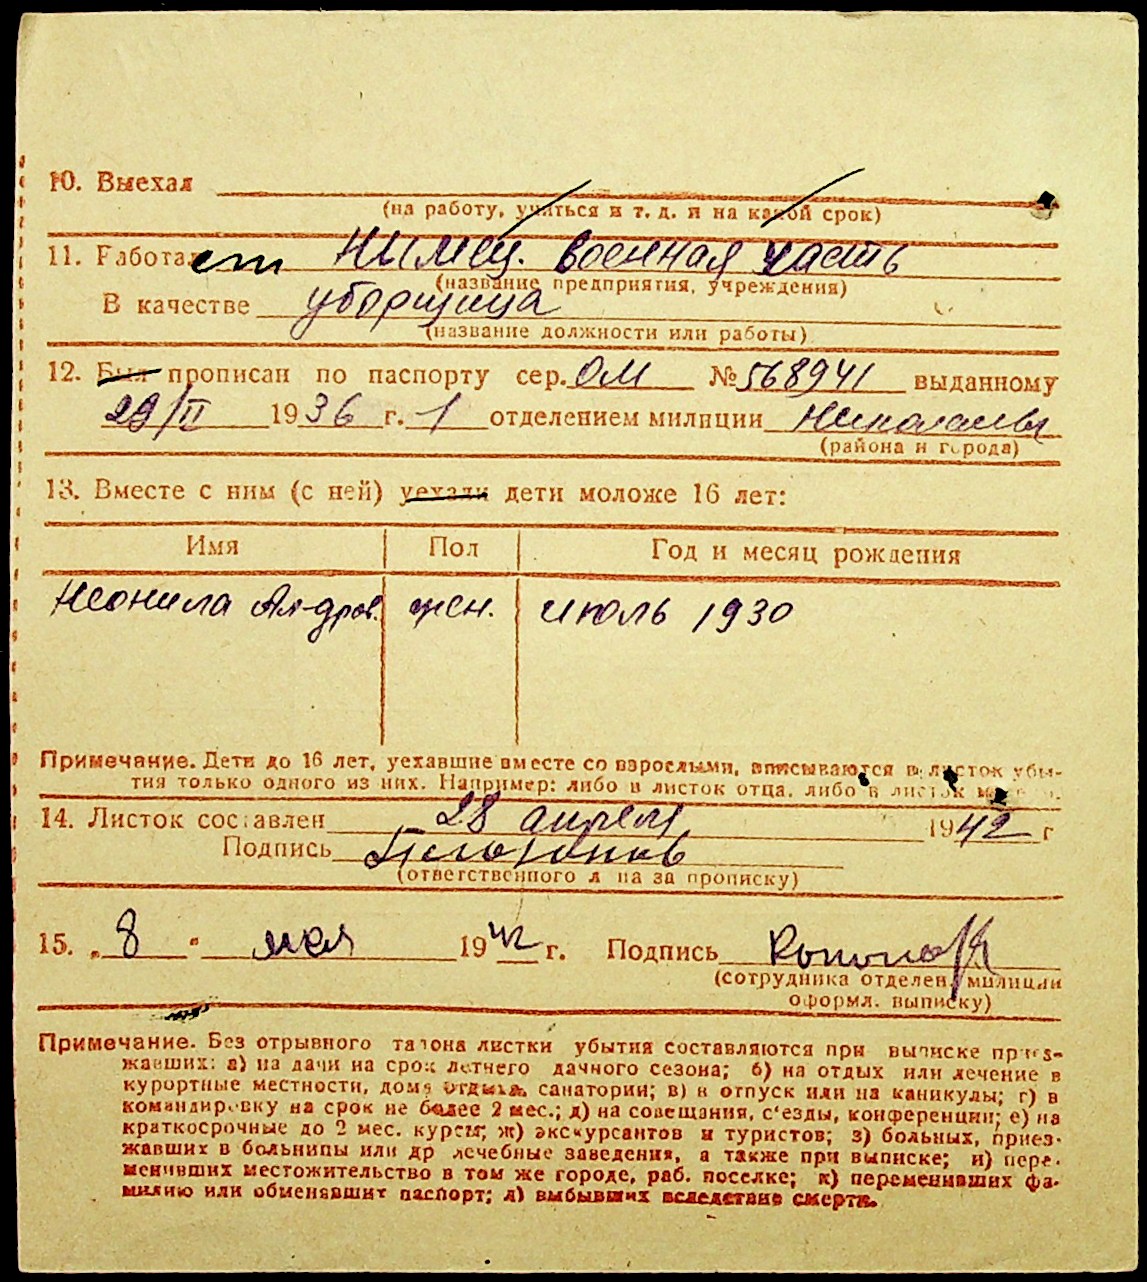 10. Выехал
(на работу, учиться и т. д. и на какой срок)
11. Работает Нимец. военная часть
(название предприятия, учреждения)
В качестве уборщица
(название должности или работы)
12. Был прописан по паспорту сер. ОМ №568941 выданному
29/II 1936 г. 1 отделением милиции
(района и города)
13. Вместе с ним (с ней) уехали дети моложе 16 лет:
Имя Пол Год и месяц рождения
Неонила Ал-дров. жен. июль 1930
Примечание. Дети до 16 лет, уехавшие вместе со взрослыми, вписываются в листок убы-
тия только одного из них. Например: либо в листок отца, либо в листок
14. Листок составлен 28 апреля 1942 г
Подпись
(ответственного за прописку)
15. „8" мая 1942 г. Подпись
(сотрудника отделен. милиции
оформл. выписку)
Примечание. Без отрывного талона листки убытия составляются при выписке приез-
жавших: а) на дачи на срок летнего дачного сезона; б) на отдых или лечение в
курортные местности, дома отдыха, санатории; в) в отпуск или на каникулы; г) в
командировку на срок не более 2 мес.; д) на совещания, с'езды, конференции; е) на
краткосрочные до 2 мес. курсы; ж) экскурсантов и туристов; з) больных, приез-
жавших в больницы или др лечебные заведения, а также при выписке; и) пере-
менивших местожительство в том же городе, раб. поселке; к) переменивших фа-
милию или обменявших паспорт; л) выбывших вследствие смерти.